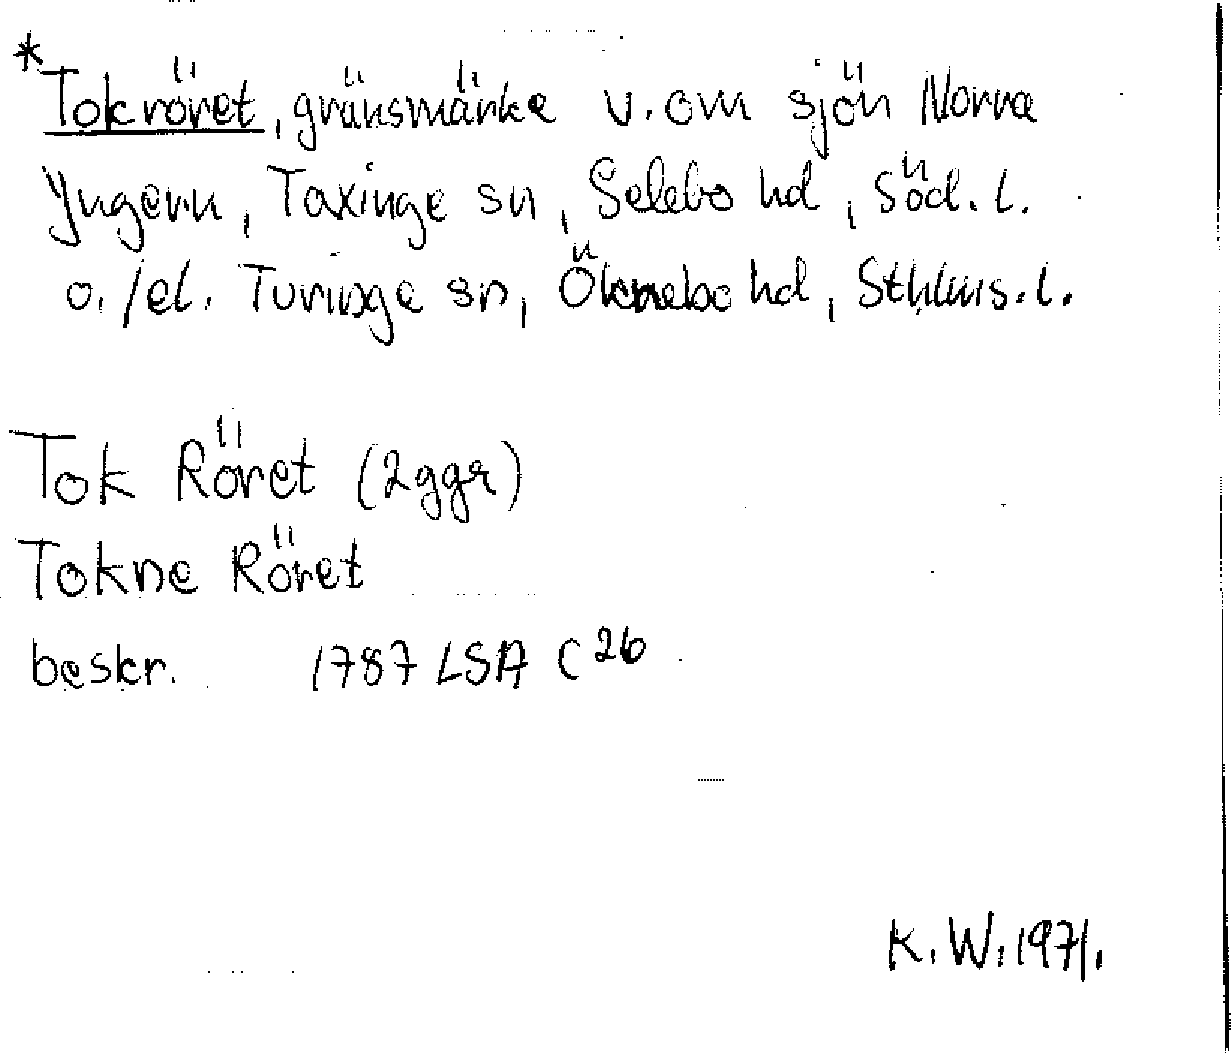 *Tokröret, gränsmärke v. om sjön Norra
Yngern, Taxinge sn, Selebo hd, Söd. l.
o./el. Turinge sn, Öknebo hd, Sthlms. l.
Tok Röret (2ggr)
Tokne Röret
beskr. 1787 LSA C 26
K. W. 1971.